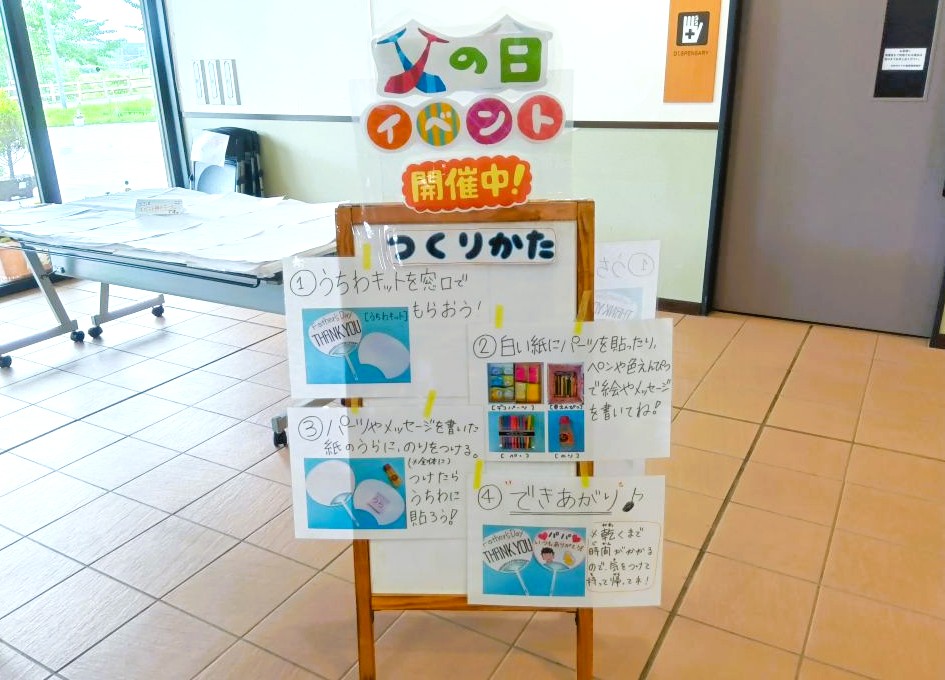 父の日
イベント
開催中!
つくりかた
①うちわキットを窓口で
もらおう!
Father's Day
THANK YOU
[うちわキット]
②白い紙にパーツを貼ったり、
ペンや色えんぴつ
で絵やメッセージ
を書いてね!
[デコパーツ]
[色えんぴつ]
[ペン]
[のり]
③パーツやメッセージを書いた
紙のうらに、のりをつける。
(※全体に)
つけたら
うちわに
貼ろう!
④できあがり♪
Father's Day
THANK YOU
パパ
いつもありがとう
※乾くまで
時間がかかる
ので、気をつけて
持って帰ってネ!
DISPENSARY